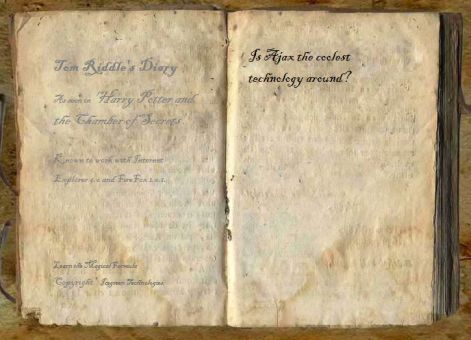 Tom Riddle's Diary
As seen in 'Harry Potter and
the Chamber of Secrets'
Known to work with Internet
Explorer and FireFox
Learn the Magical Formula
Copyright Technologies
Is Ajax the coolest
technology around?